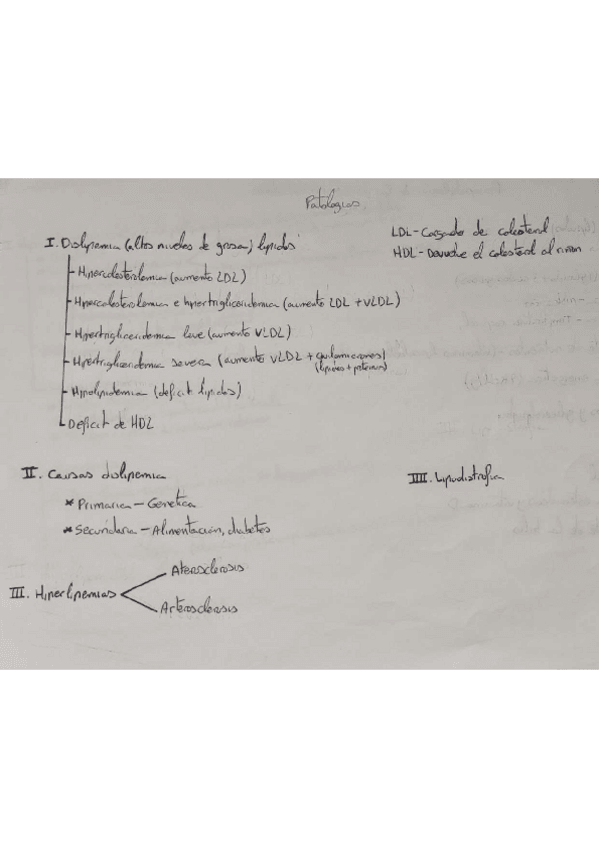 Patologias
LDL-Cargado de colesterol
HDL-Devuelve el colesterol al riñon
I. Dislipemia (altos niveles de grasa) lipidos
Hipercolesterolemia (aumento LDL)
Hipercolesterolemia e hipertrigliceridemia (aumento LDL + VLDL)
Hipertrigliceridemia leve (aumento VLDL)
Hipertrigliceridemia severa (aumento VLDL + quilomicrones)
(lipidos + proteinas)
Hipolipidemia (deficit lipidos)
Deficit de HDL
II. Causas dislipemia
* Primaria - Genetica
* Secundaria - Alimentación, diabetes
IIII. Lipodistrofia
III. Hiperlipemias
Aterosclerosis
Arterosclerosis